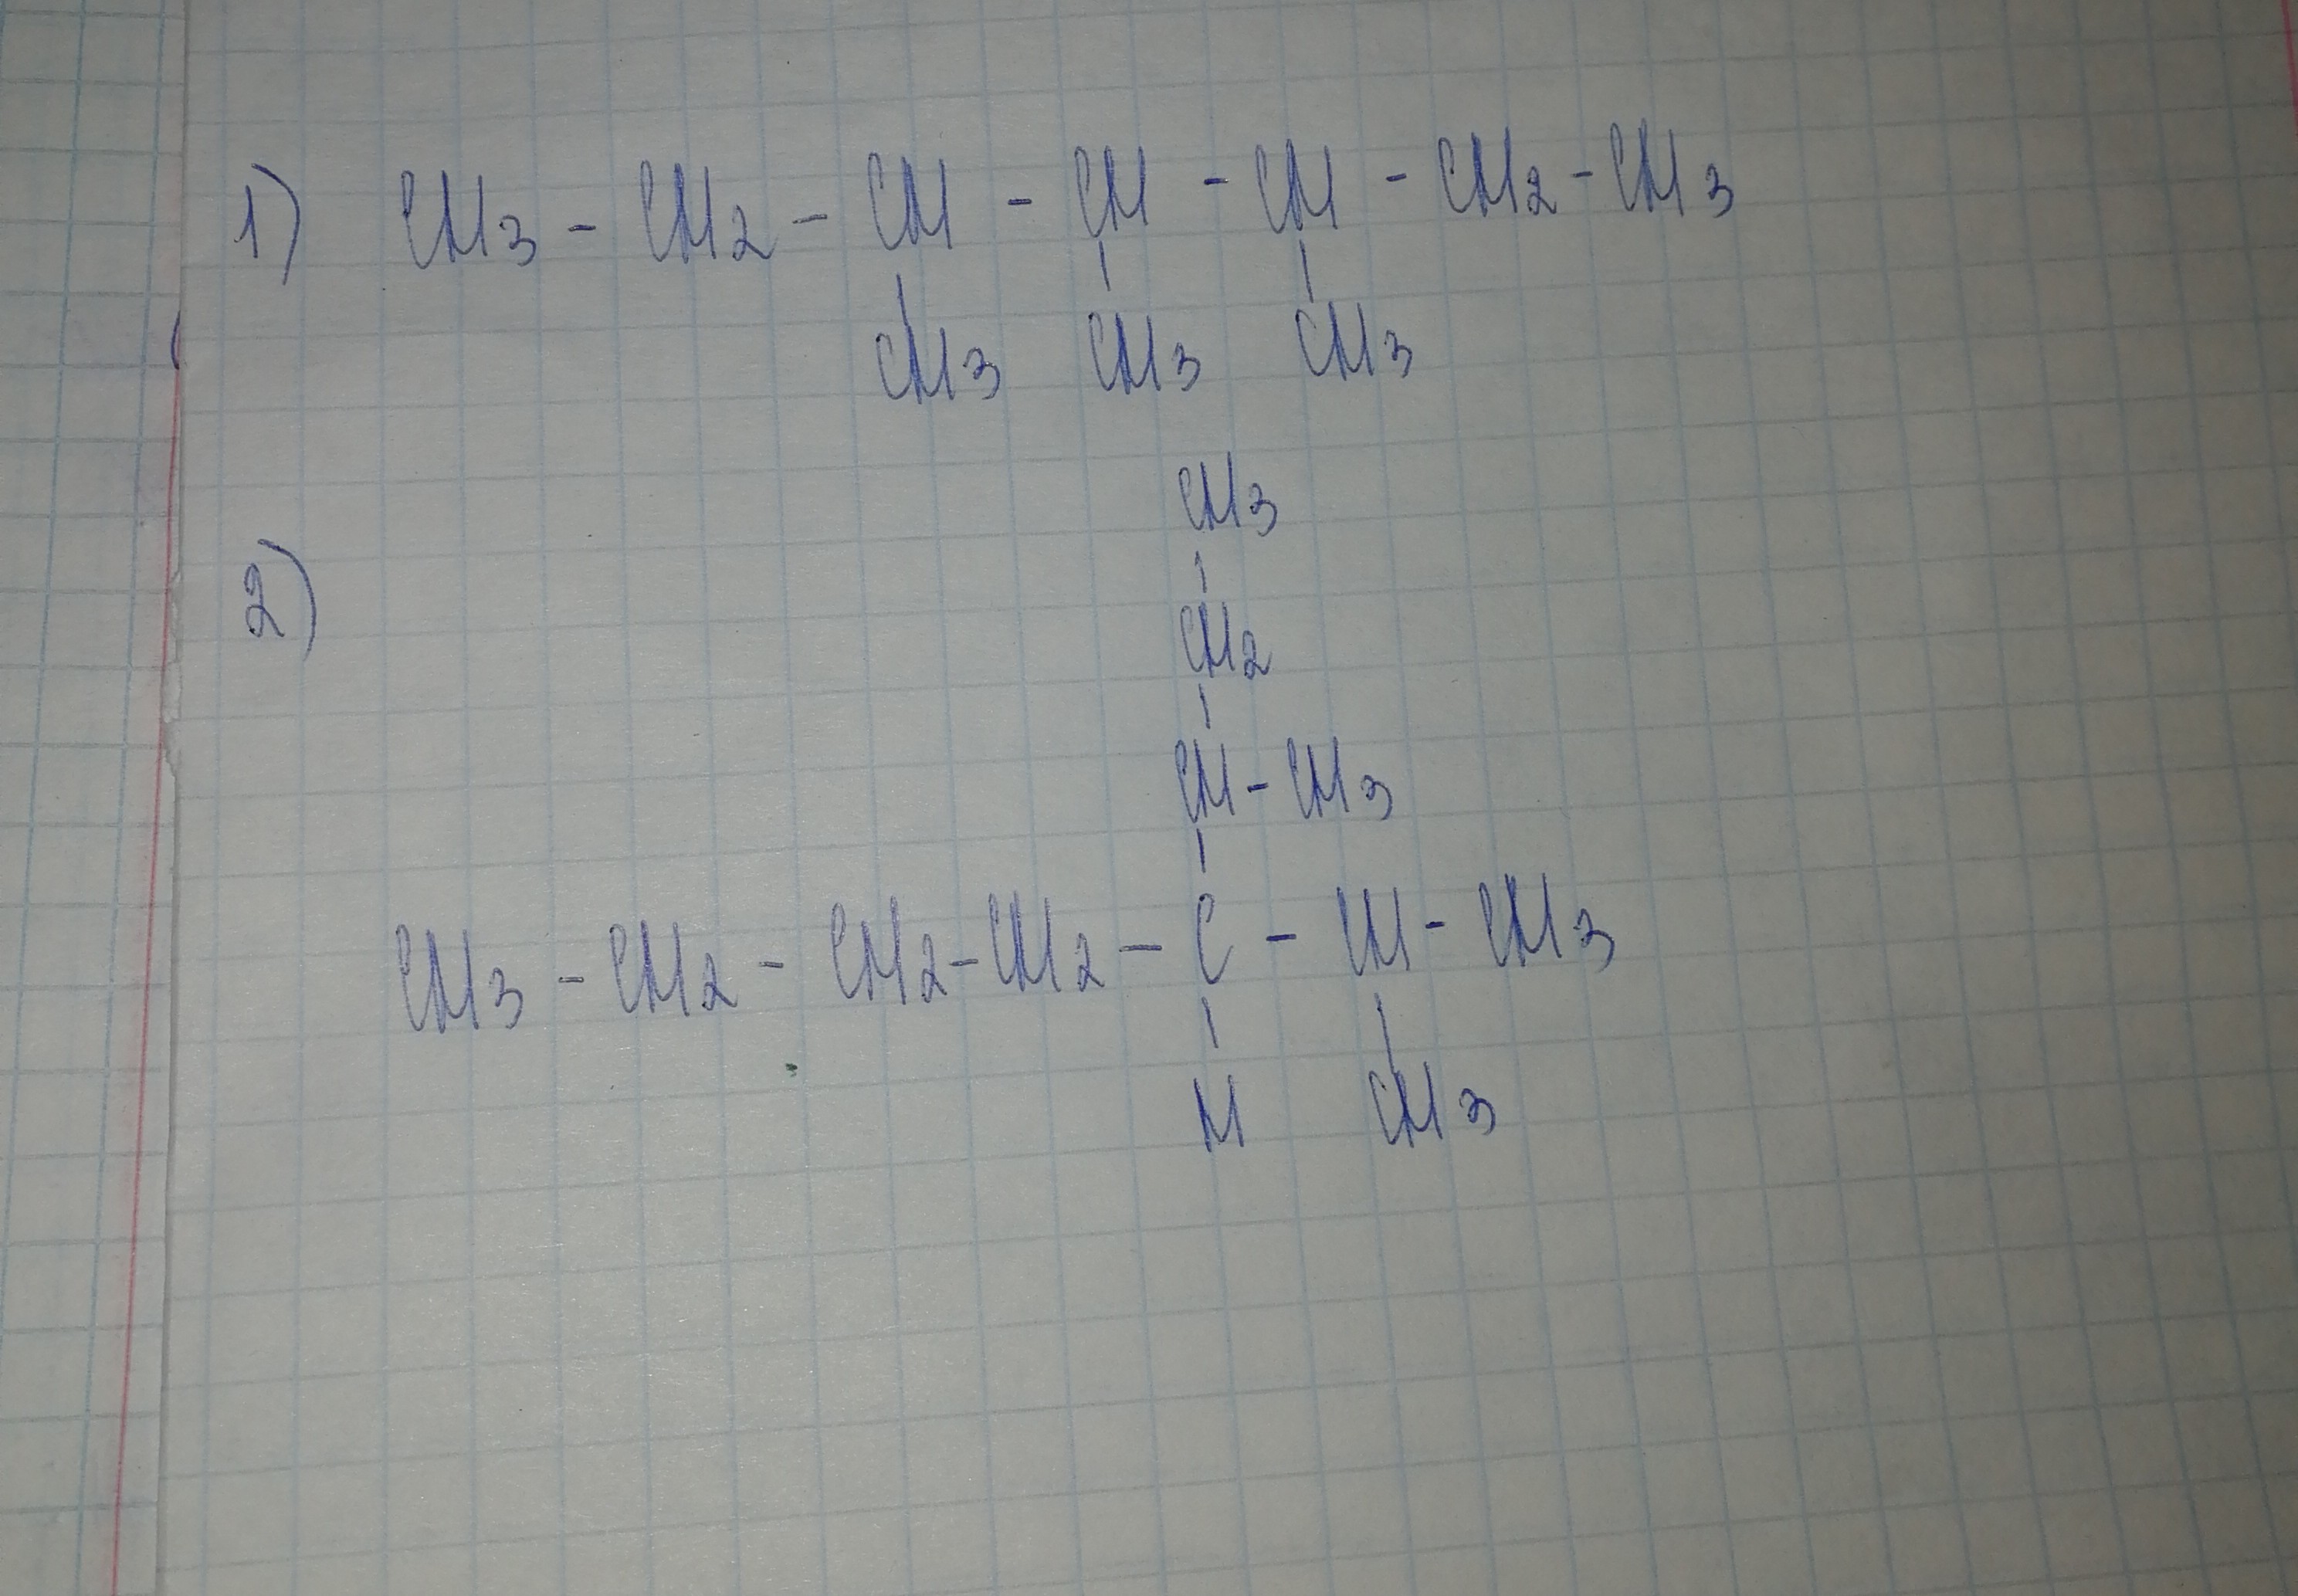 1) CH3 - CH2 - CH - CH - CH - CH2 - CH3
CH3 CH3 CH3
CH3
2)
CH2
CH - CH3
CH3 - CH2 - CH2 - CH2 - C - CH - CH3
H CH3